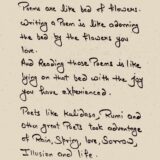 Poems are like bed of flowers.
Writing a Poem is like adorning
the bed by the flowers you
love.
And Reading those Poems is like
lying on that bed with the joy
you have experienced.
Poets like Kalidasa, Rumi and
other great Poets took advantage
of Rain, Spring, love, Sorrow,
Illusion and life.